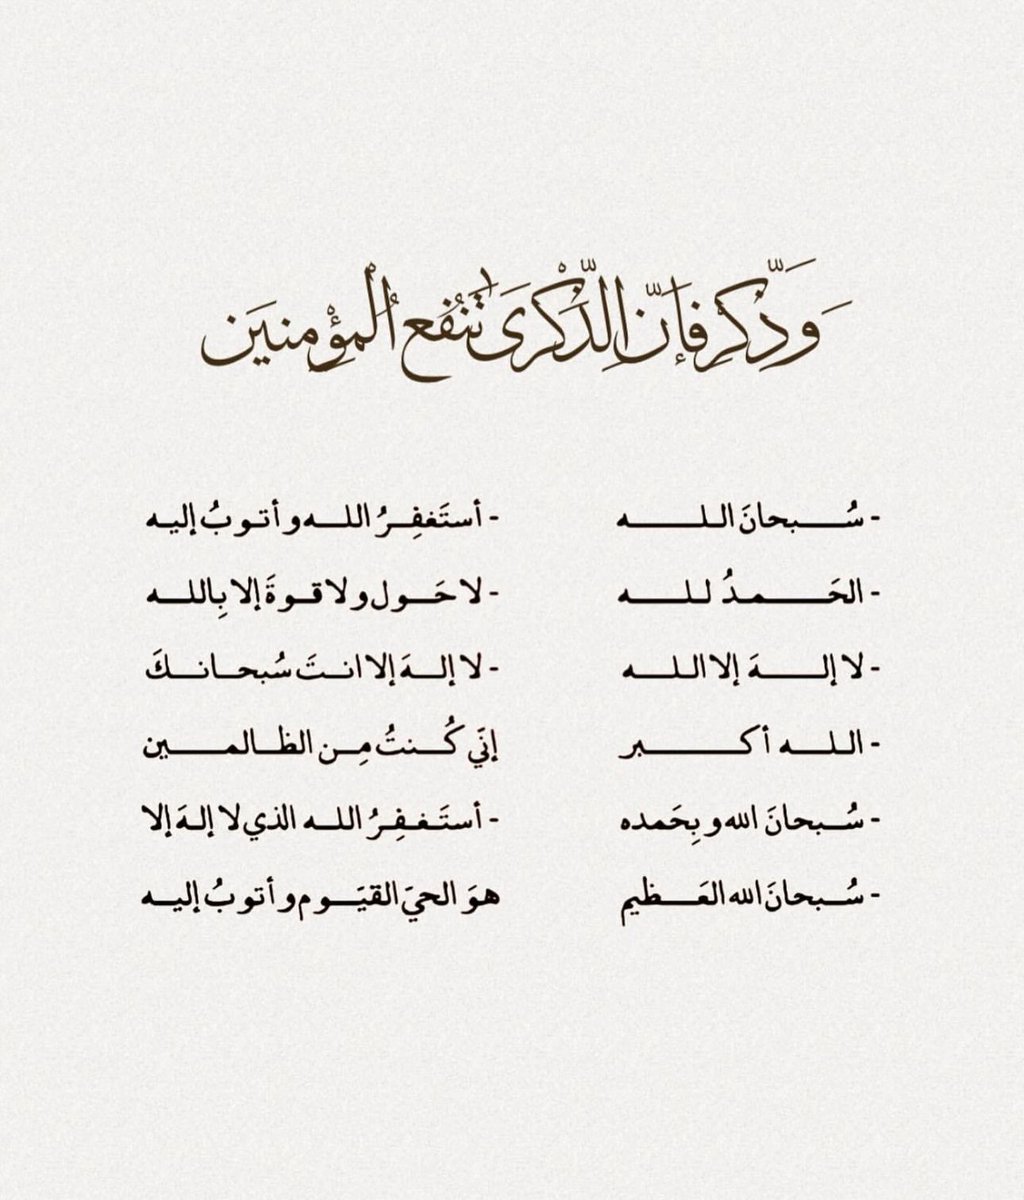 وَذَكِّرْ فَإِنَّ الذِّكْرَىٰ تَنْفَعُ الْمُؤْمِنِينَ
- سُبحانَ الله
- الحَمدُ لله
- لا إلهَ إلا الله
- الله أكبر
- سُبحانَ الله و بِحَمده
- سُبحانَ الله العَظيم
- أستَغفِرُ الله و أتوبُ إليه
- لا حَول و لا قوةَ إلا بِالله
- لا إلهَ إلا انتَ سُبحانكَ
إنَي كُنتُ مِن الظالمين
- أستَغفِرُ الله الذي لا إلهَ إلا
هوَ الحيَ القيَوم و أتوبُ إليه